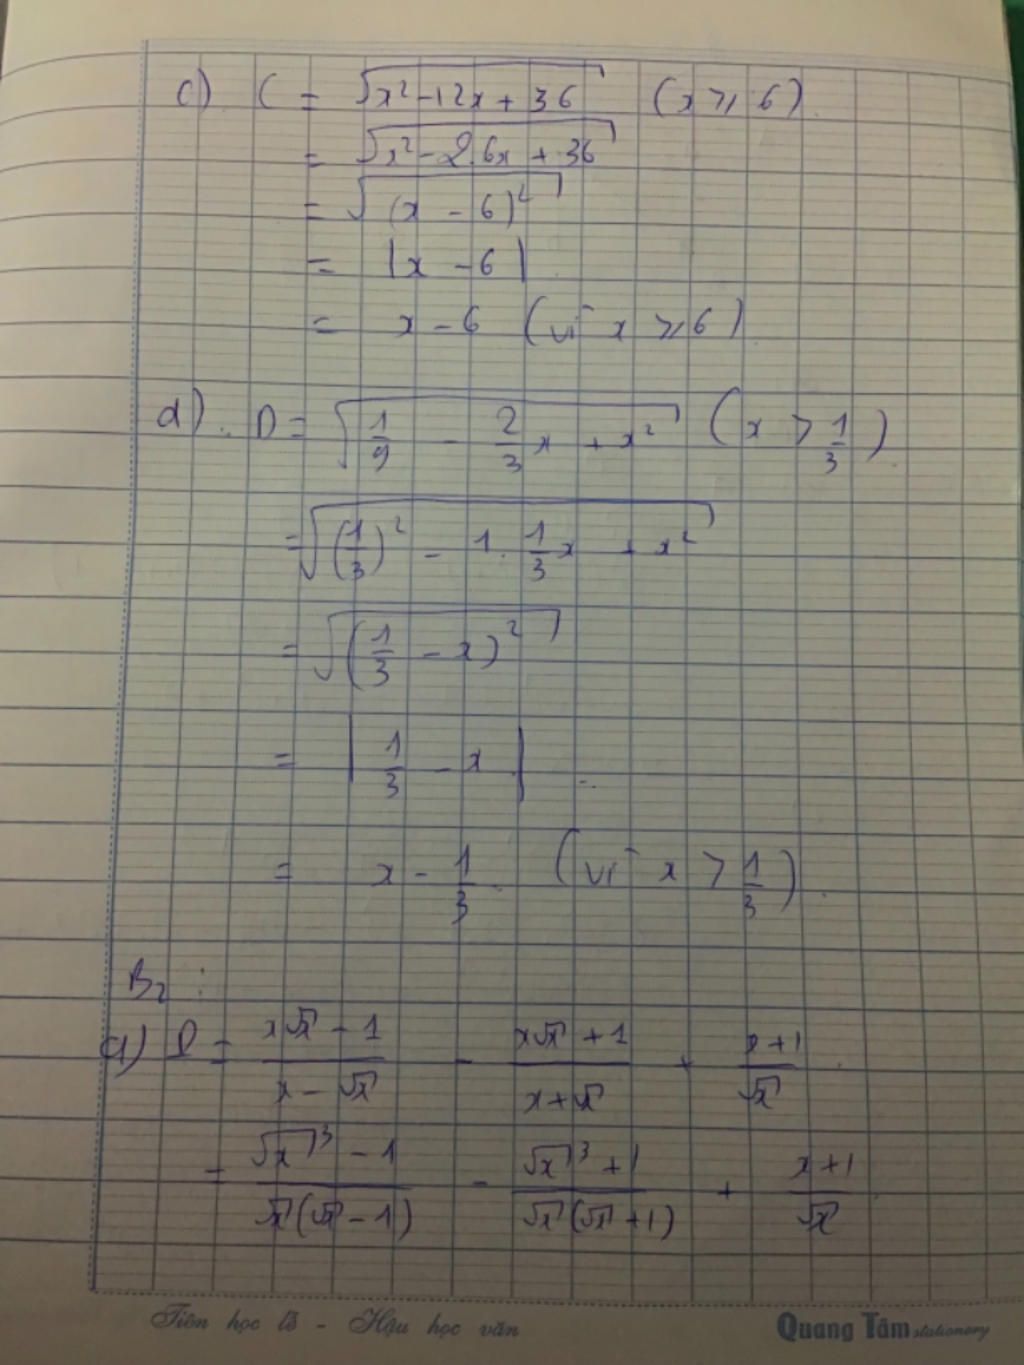 c) C = √(x² - 12x + 36) (x ⩾ 6)
= √(x² - 2.6x + 36)
= √((x - 6)²)
= |x - 6|
= x - 6 (vì x ⩾ 6)
d). D = √(1/9 - 2/3 x + x²) (x > 1/3)
= √((1/3)² - 1. 1/3 x + x²)
= √((1/3 - x)²)
= |1/3 - x|
= x - 1/3 (vì x > 1/3).
B2 :
a) P = (x√x - 1)/(x - √x) - (x√x + 1)/(x + √x) + (x + 1)/√x
= (√x)³ - 1)/(√x(√x - 1)) - (√x)³ + 1)/(√x(√x + 1)) + (x + 1)/√x
Tiên học lễ - Hậu học văn
Quang Tâm stationery